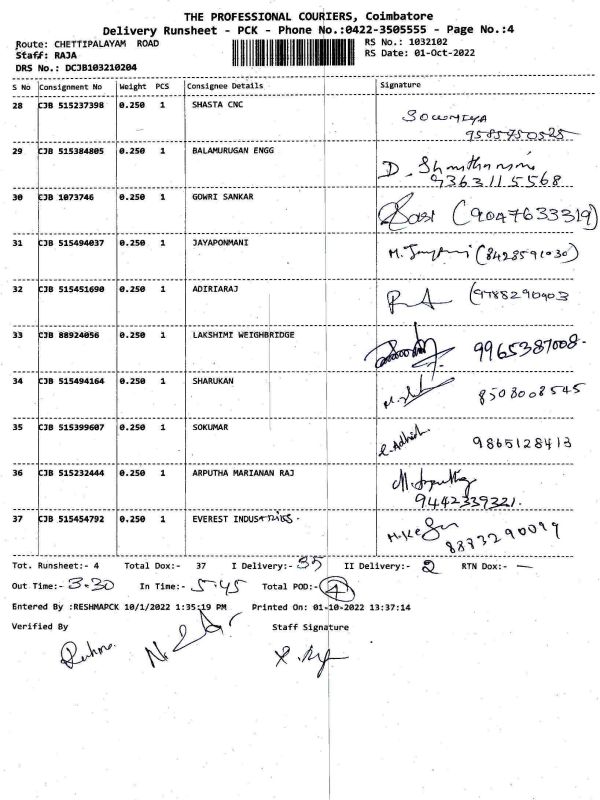 THE PROFESSIONAL COURIERS, Coimbatore
Delivery Runsheet - PCK - Phone No.:0422-3505555 - Page No.:4
Route: CHETTIPALAYAM ROAD
RS No.: 1032102
Staff: RAJA
RS Date: 01-Oct-2022
DRS No.: DCJB103210204
S No Consignment No Weight PCS Consignee Details Signature
28 CJB 515237398 0.250 1 SHASTA CNC
SOWMIYA
9585750525
29 CJB 515384805 0.250 1 BALAMURUGAN ENGG
D.
9363115568
30 CJB 1073746 0.250 1 GOWRI SANKAR
Sasi (9047633319)
31 CJB 515494037 0.250 1 JAYAPONMANI
M. (8428591030)
32 CJB 515451690 0.250 1 ADIRIARAJ
(9788290903
33 CJB 88924056 0.250 1 LAKSHIMI WEIGHBRIDGE
9965387008.
34 CJB 515494164 0.250 1 SHARUKAN
8508008545
35 CJB 515399607 0.250 1 SOKUMAR
9865128413
36 CJB 515232444 0.250 1 ARPUTHA MARIANAN RAJ
M. Arputha
9442339321.
37 CJB 515454792 0.250 1 EVEREST INDUSTRIES.
8873290099
Tot. Runsheet:- 4 Total Dox:- 37 I Delivery:- 35 II Delivery:- 2 RTN Dox:- —
Out Time:- 3.30 In Time:- 5.45 Total POD:- 4
Entered By :RESHMAPCK 10/1/2022 1:35:19 PM Printed On: 01-10-2022 13:37:14
Verified By Staff Signature